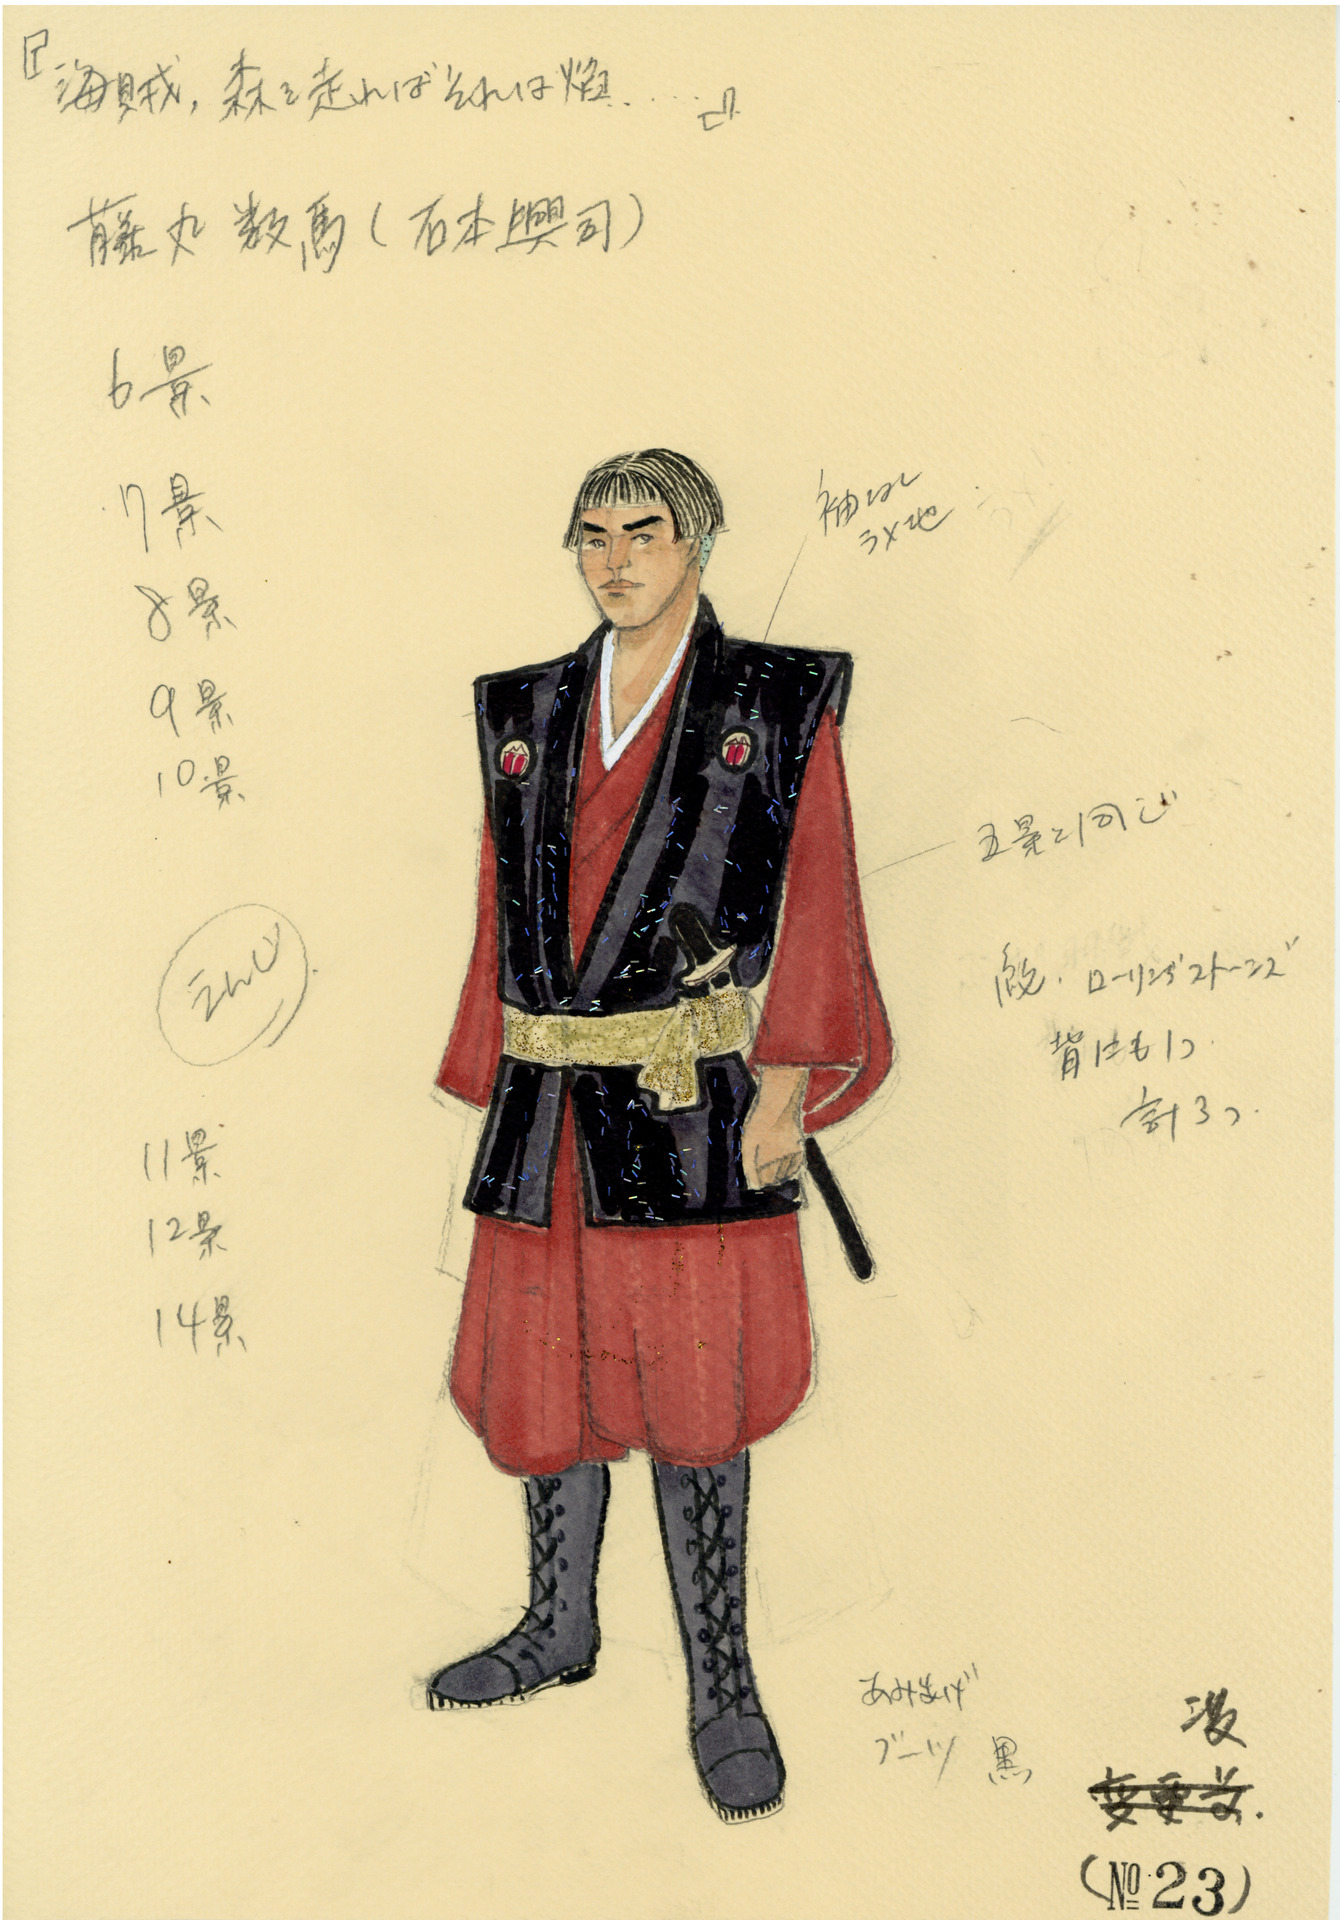 『海賊，森を走ればそれは焔……』
藤丸 数馬（石本興司）
6景
7景
8景
9景
10景
えんじ
11景
12景
14景
袖なし
ラメ地
五景と同じ
紋．ローリングストーンズ
背にも1つ
計3つ．
あみあげ
ブーツ 黒
変更前．
(№23)